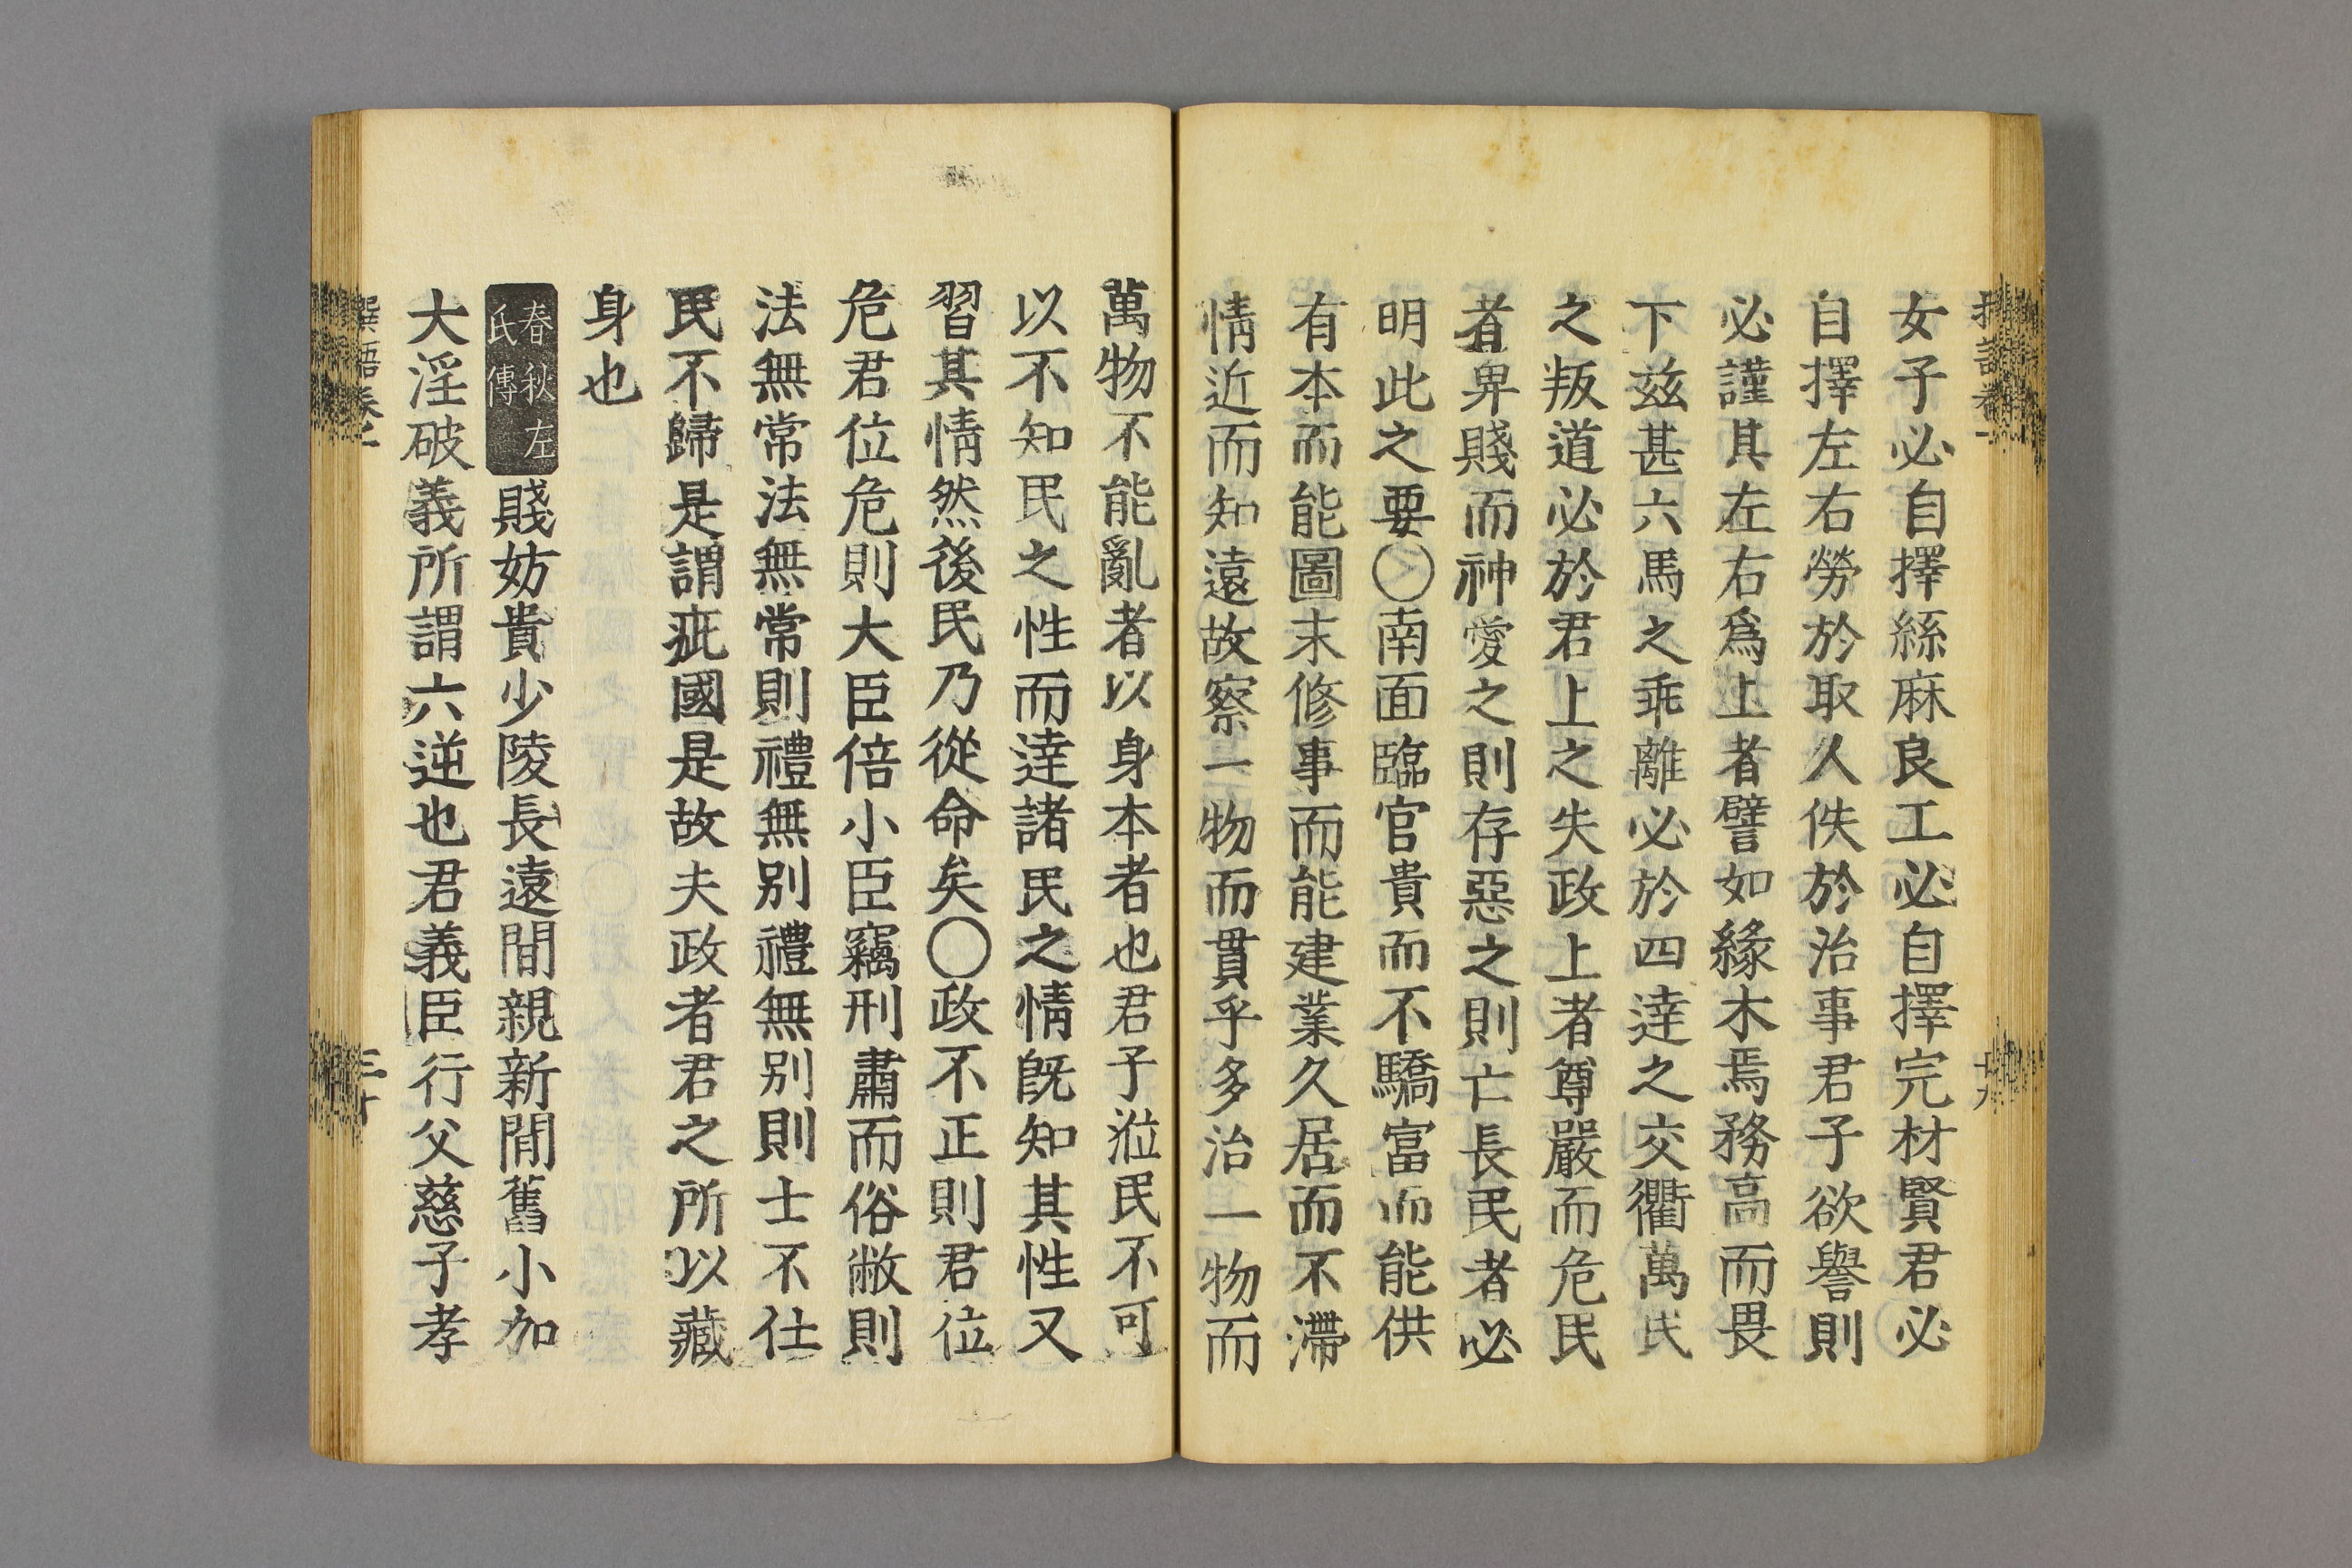 女子必自擇絲麻良工必自擇完材賢君必
自擇左右勞於取久佚於治事君子欲譽則
必謹其左右爲上者譬如緣木焉務高而畏
下玆甚六馬之乖離必於四逹之交衢萬民
之叛道必於君上之失政上者尊嚴而危民
者卑賤而神愛之則存惡之則亡長民者必
明此之要○南面臨官貴而不驕富而能供
有本而能圖末修事而能建業久居而不滯
情近而知遠故察一物而貫乎多治一物而
萬物不能亂者以身本者也君子涖民不可
以不知民之性而逹諸民之情旣知其性又
習其情然後民乃從命矣○政不正則君位
危君位危則大臣倍小臣竊刑肅而俗敝則
法無常法無常則禮無別禮無別則士不仕
民不歸是謂疵國是故夫政者君之所以藏
身也
春秋左氏傳 賤妨貴少陵長遠間親新間舊小加
大淫破義所謂六逆也君義臣行父慈子孝
三十